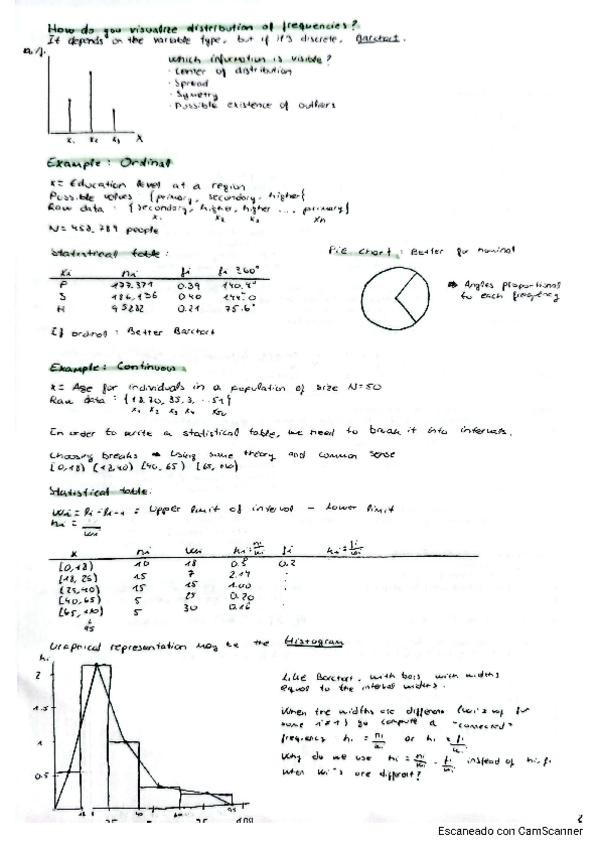 How do you visualize distribution of frequencies?
It depends on the variable type, but if it's discrete, Barchart.
Which information is visible?
· Center of distribution
· Spread
· Symetry
· Possible existence of outliers
x₁ x₂ x₃ X
Example: Ordinal
X = Education level at a region
Possible values {primary, secondary, higher}
Raw data : {secondary, higher, higher ... primary}
x₁ x₂ x₃ xₙ
N = 457.789 people
Statistical table:
Pie chart: Better for nominal
xi ni fi fi 360°
P 177.371 0.39 140.4°
S 186.136 0.40 144.0
H 95282 0.21 75.6°
⇒ Angles proportional
to each frequency
If ordinal: Better Barchart
Example: Continuous
X = Age for individuals in a population of size N=50
Raw data : {
x₁ x₂ x₃ x₄ x₅₀
In order to write a statistical table, we need to break it into intervals.
Choosing breaks ⇒ Using some theory and common sense
[0,18) [40,65)
Statistical table:
= Upper limit of interval - Lower limit
x ni wi hi=ni/wi fi hi=fi/wi
[0,18) 10 18 0.5 0.2
[18,25) 15 7 2.14
[25,40) 15 15 1.00
[40,65) 5 25 0.20
5 30 0.16
95
Graphical representation may be the Histogram
hi
2
1.5
1
0.5
Like Barchart, with bars with widths
equal to the interval widths.
When the widths are different
compute a "corrected"
frequency hi = ni/wi or hi = fi/wi
Why do we use hi = ni/wi, fi/wi instead of ni, fi
when wi's are different?
2
Escaneado con CamScanner